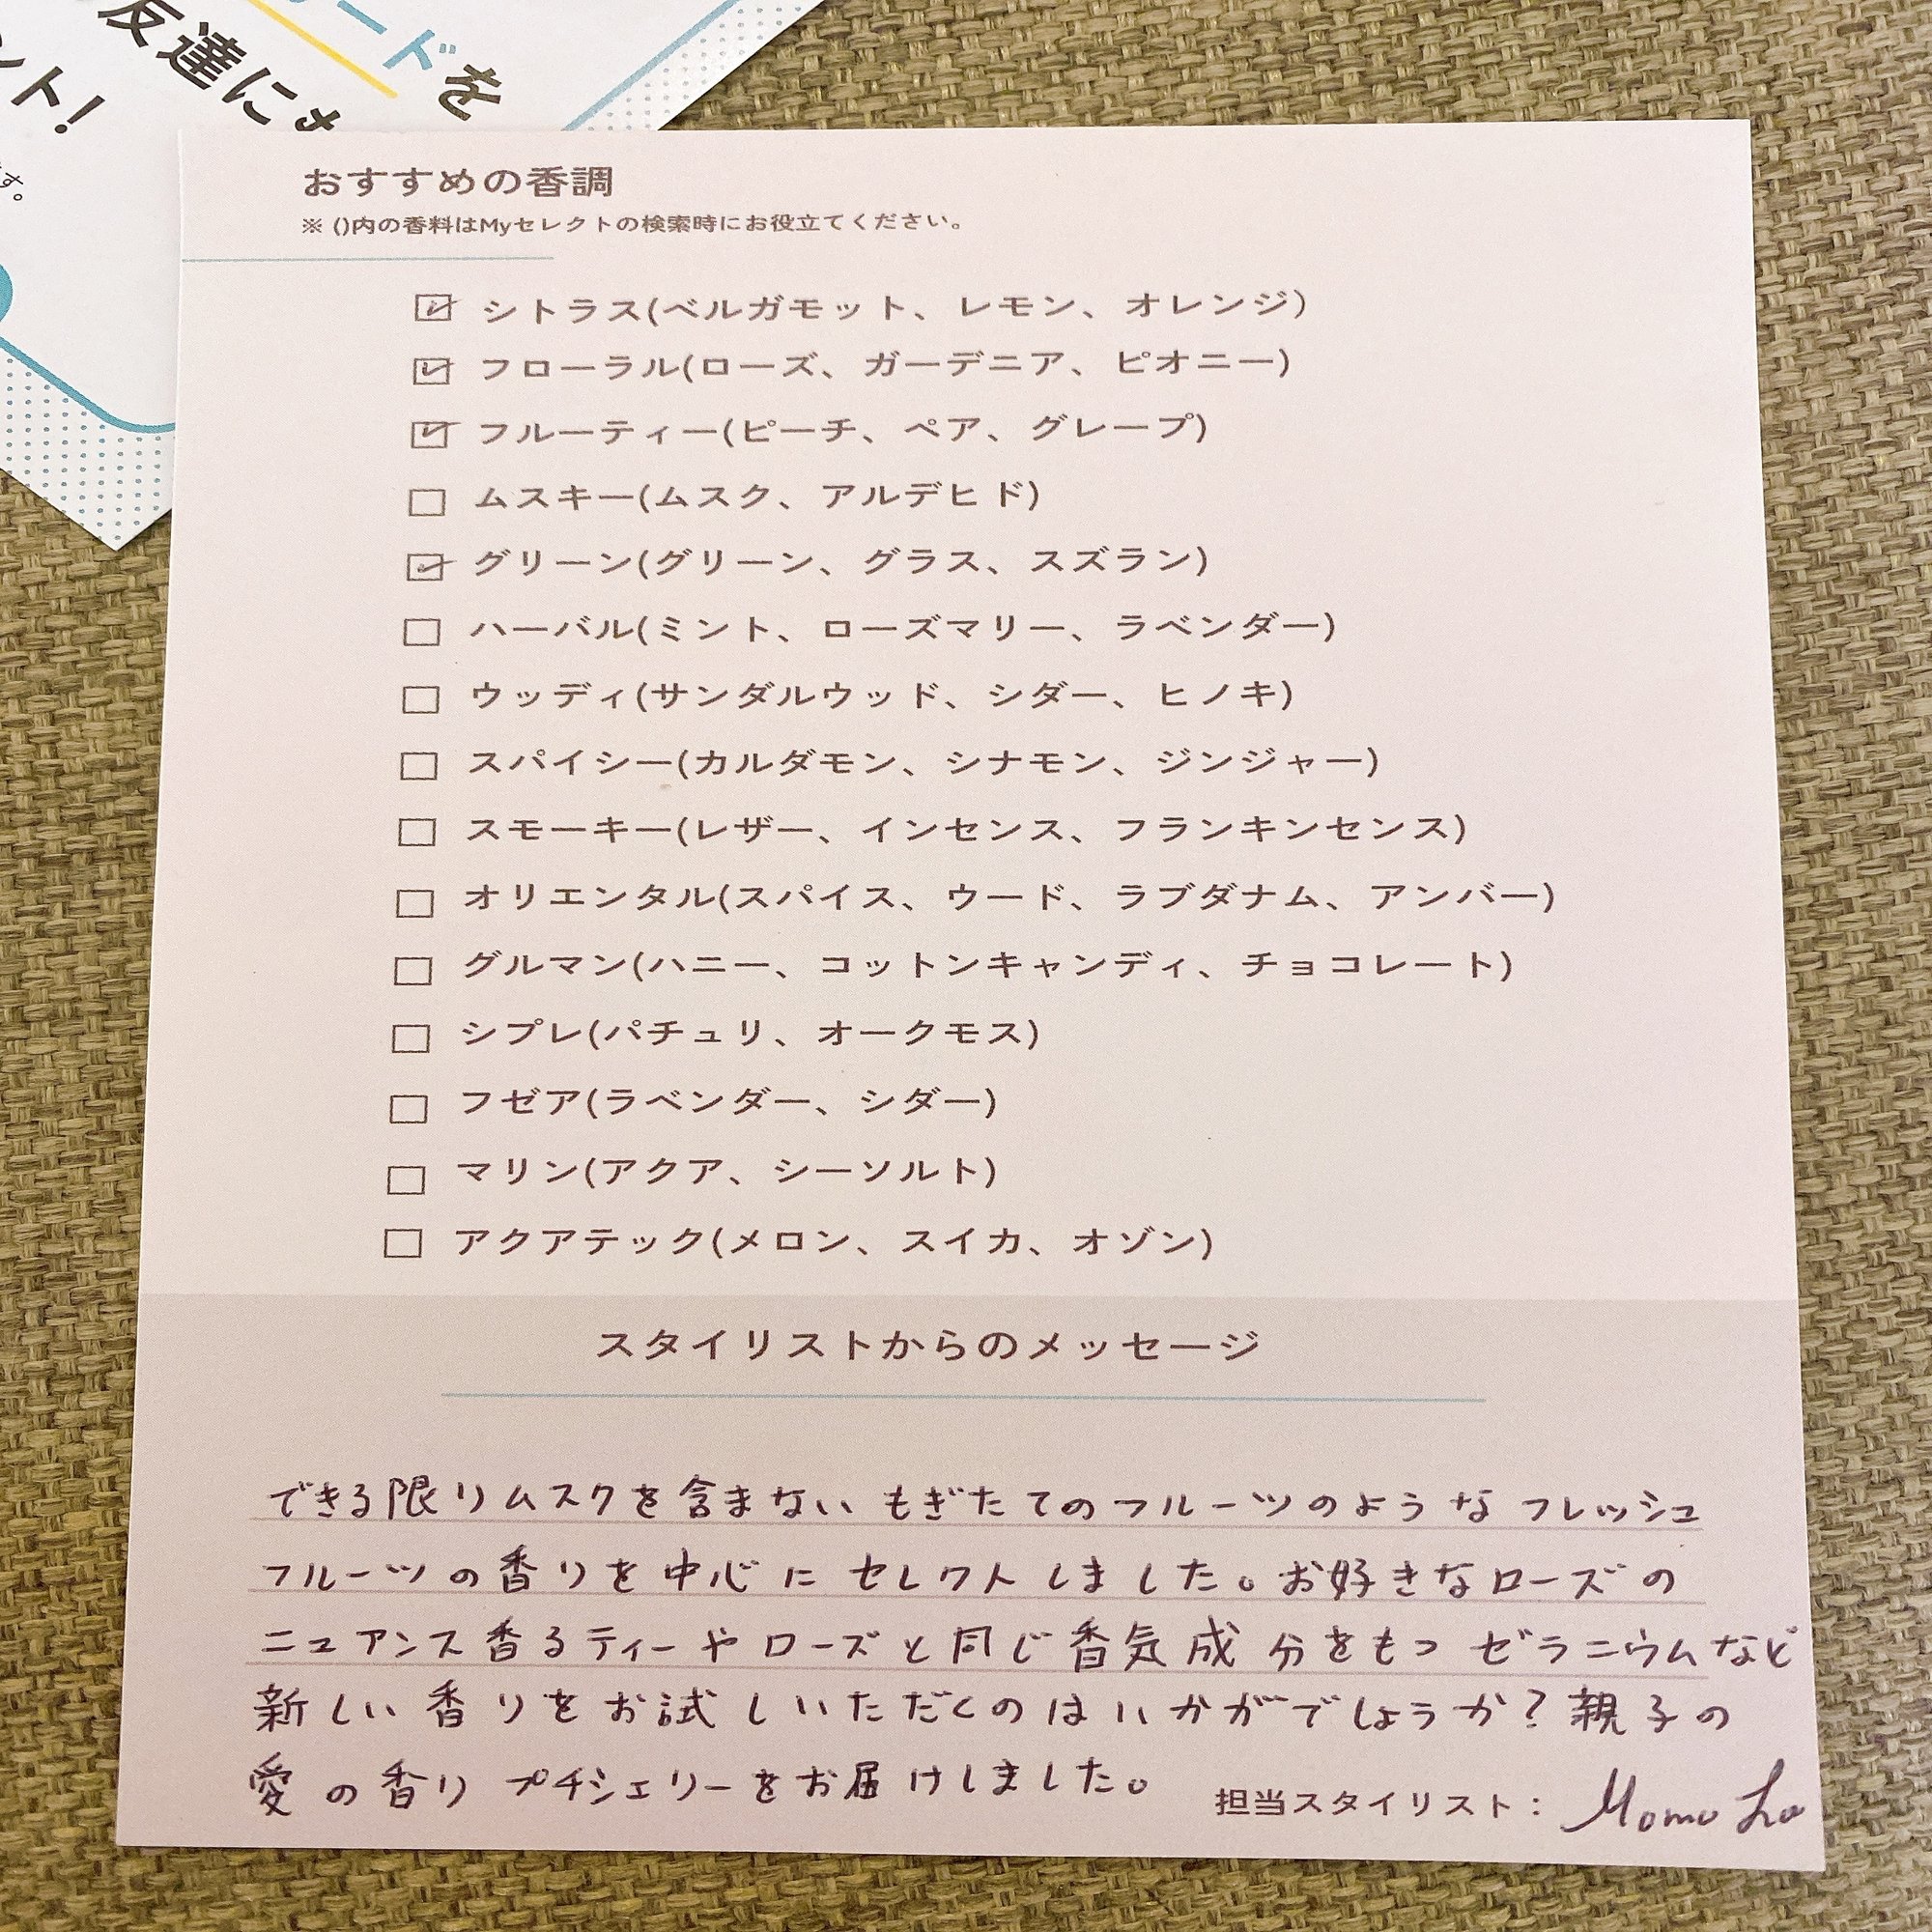 ードを
友達にも
ント!
す。
おすすめの香調
※ ()内の香料はMyセレクトの検索時にお役立てください。
☑ シトラス(ベルガモット、レモン、オレンジ)
☑ フローラル(ローズ、ガーデニア、ピオニー)
☑ フルーティー(ピーチ、ペア、グレープ)
☐ ムスキー(ムスク、アルデヒド)
☑ グリーン(グリーン、グラス、スズラン)
☐ ハーバル(ミント、ローズマリー、ラベンダー)
☐ ウッディ(サンダルウッド、シダー、ヒノキ)
☐ スパイシー(カルダモン、シナモン、ジンジャー)
☐ スモーキー(レザー、インセンス、フランキンセンス)
☐ オリエンタル(スパイス、ウード、ラブダナム、アンバー)
☐ グルマン(ハニー、コットンキャンディ、チョコレート)
☐ シプレ(パチュリ、オークモス)
☐ フゼア(ラベンダー、シダー)
☐ マリン(アクア、シーソルト)
☐ アクアテック(メロン、スイカ、オゾン)
スタイリストからのメッセージ
できる限りムスクを含まない もぎたてのフルーツのような フレッシュ
フルーツの香りを中心に セレクトしました。お好きなローズの
ニュアンス香るティーやローズと同じ香気成分をもつ ゼラニウムなど
新しい香りをお試しいただくのはいかがでしょうか?親子の
愛の香り プチシェリーをお届けしました。
担当スタイリスト: Momo